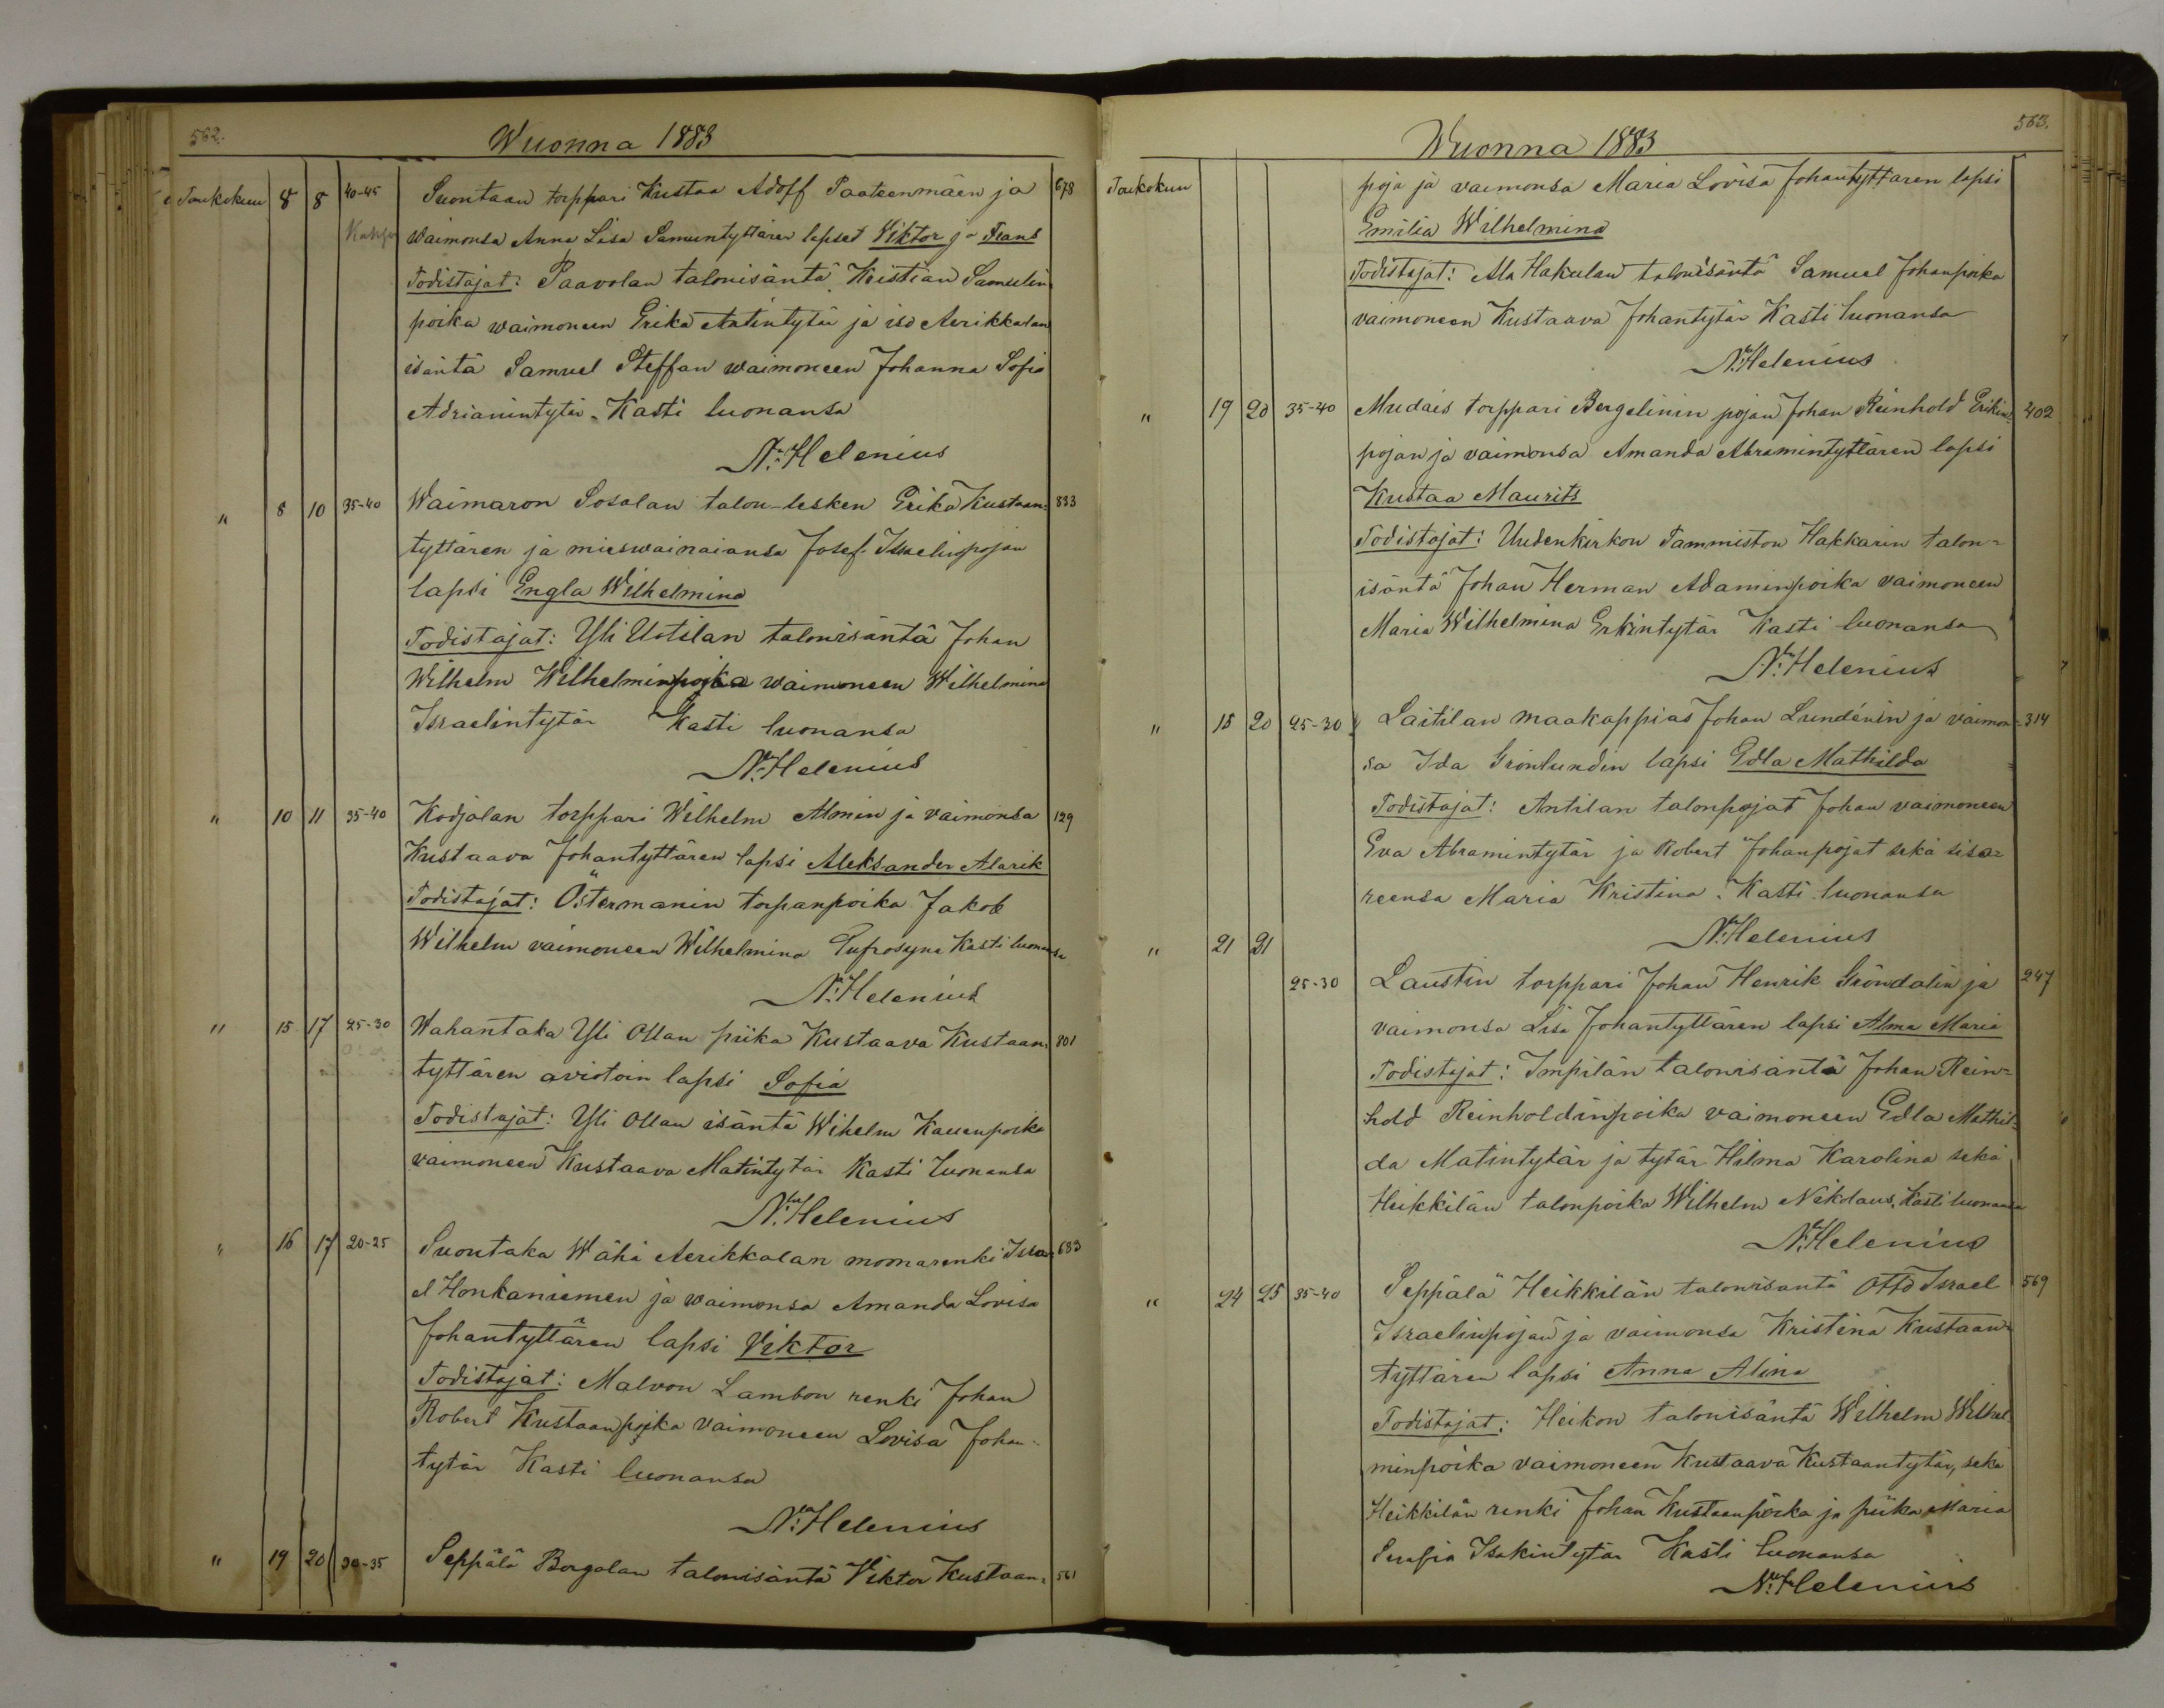 562.
Wuonna 1883
Toukokuun 8 8 40-45 Suontaan torppari Kustaa Adolf Paateenmäen ja 678
Kakso waimonsa Anna Lisa Samuntyttären lapset Viktor ja Frans
Todistajat: Paavolan talonisäntä Kristian Samulin
poika waimoneen Erika Antintytär ja iso Aerikkalan
isäntä Samuel Steffan waimoneen Johanna Sofia
Adrianintytär. Kasti luonansa
N. Helenius
" 8 10 35-40 Waimaron Sosalan talon-lesken Erika Kustaan= 833
tyttären ja mieswainaiansa Josef Israelinpojan
lapsi Engla Wilhelmina
Todistajat: Yli Uotilan talonisäntä Johan
Wilhelm Wilhelminpoika waimoneen Wilhelmina
Israelintytär Kasti luonansa
N. Helenius
" 10 11 35-40 Kodjalan torppari Wilhelm Almin ja vaimonsa 129
Kustaava Johantyttären lapsi Aleksander Alarik
Todistajat: Östermanin torpanpoika Jakob
Wilhelm vaimoneen Wilhelmina Eufrosyna Kasti luonansa
N. Helenius
" 15 17 25-30 Wahantaka Yli Ollan piika Kustaava Kustaan= 801
tyttären aviotoin lapsi Sofia
Todistajat: Yli Ollan isäntä Wihelm Kauenpoika
vaimoneen Kustaava Matintytär Kasti luonansa
N. Helenius
" 16 17 20-25 Suontaka Wähä Aerikkalan moonarenki Isra= 683
el Honkaniemen ja waimonsa Amanda Lovisa
Johantyttären lapsi Viktor
Todistajat: Malvon Lambon renki Johan
Robert Kustaanpoika vaimoneen Lovisa Johan=
tytär Kasti luonansa
N. Helenius
" 19 20 30-35 Seppälä Borgolan talonisäntä Viktor Kustaan= 561
563.
Wuonna 1883
Toukokuun poja ja vaimonsa Maria Lovisa Johantyttären lapsi
Emilia Wilhelmina
Todistajat: Ala Hakulan talonisäntä Samuel Johanpoika
vaimoneen Kustaava Johantytär Kasti luonansa
N. Helenius
" 19 20 35-40 Mudais torppari Bergelinin pojan Johan Reinhold Erikin= 402
pojan ja vaimonsa Amanda Abramintyttären lapsi
Kustaa Maurits
Todistajat: Uudenkirkon Tammiston Hakkarin talon=
isäntä Johan Herman Adaminpoika vaimoneen
Maria Wilhelmina Erkintytär Kasti luonansa
N. Helenius
" 15 20 25-30 Laitilan maakappias Johan Lundénin ja vaimon= 314
sa Ida Grönlundin lapsi Edla Mathilda
Todistajat: Antilan talonpojat Johan vaimoneen
Eva Abramintytär ja Robert Johanpojat sekä sisa=
reensa Maria Kristina. Kasti luonansa
N. Helenius
" 21 21
25-30 Laustin torppari Johan Henrik Gröndalin ja 247
vaimonsa Lisa Johantyttären lapsi Alma Maria
Todistajat: Impilän talonisäntä Johan Rein=
hold Reinholdinpoika vaimoneen Edla Mathil=
da Matintytär ja tytär Hilma Karolina sekä
Heikkilän talonpoika Wilhelm Nikolaus, Kasti luonansa
N. Helenius
" 24 25 35-40 Seppälä Heikkilän talonisäntä Otto Israel 569
Israelinpojan ja vaimonsa Kristina Kustaan=
tyttären lapsi Anna Alina
Todistajat: Heikon talonisäntä Wilhelm Wilhel=
minpoika vaimoneen Kustaava Kustaantytär, sekä
Heikkilän renki Johan Kustaanpoika ja piika Maria
Serafia Isakintytär Kasti luonansa
N. Helenius